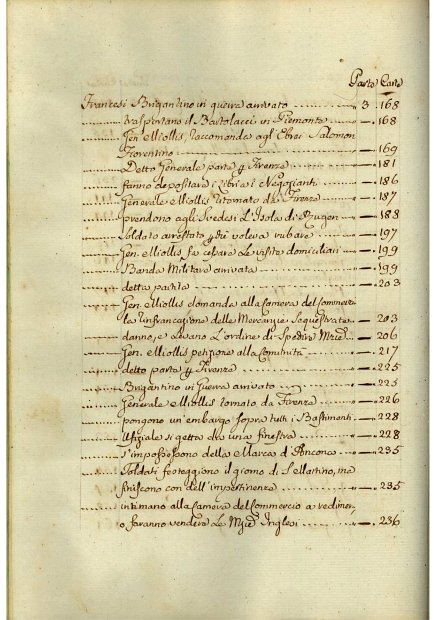 Parte Carte
Francesi Brigantino in guerra arrivato 3. 168
trasportano il Bartolacci in Piemonte „ 168
Gen. Miollis, raccomanda agl'Ebrei Salomon
Fiorentino „ 169
Detto Generale parte p Firenze „ 181
fanno depositare i Libri a i Negozianti „ 186
Generale Miollis ritornato da Firenze „ 187
prendono agli Svedesi L'Isola di Rugen „ 188
Soldato arrestato p che voleva rubare „ 197
Gen. Miollis fa cessare Le visite domiciliari „ 199
Banda Militare arrivata „ 199
detta partita „ 203
Gen. Miollis domanda alla Camera del Commercio
la rinfrancazione delle Mercanzie Sequestrate „ 203
danno, e Levano L'ordine di Spedire „ 206
Gen. Miollis petizione alla Comunità „ 217
detto parte p Firenze „ 225
Brigantino in Guerra arrivato „ 225
Generale Miollis tornato da Firenze „ 226
pongono un'embargo sopra tutti i Bastimenti „ 228
Ufiziale si getta da una finestra „ 228
s'impossessono della Marca d'Ancona „ 235
Soldati festeggiono il giorno di S. Martino, ma
finiscono con dell'impertinenze „ 235
intimano alla Camera del Commercio a redimer-
o faranno vendere Le Inglesi „ 236